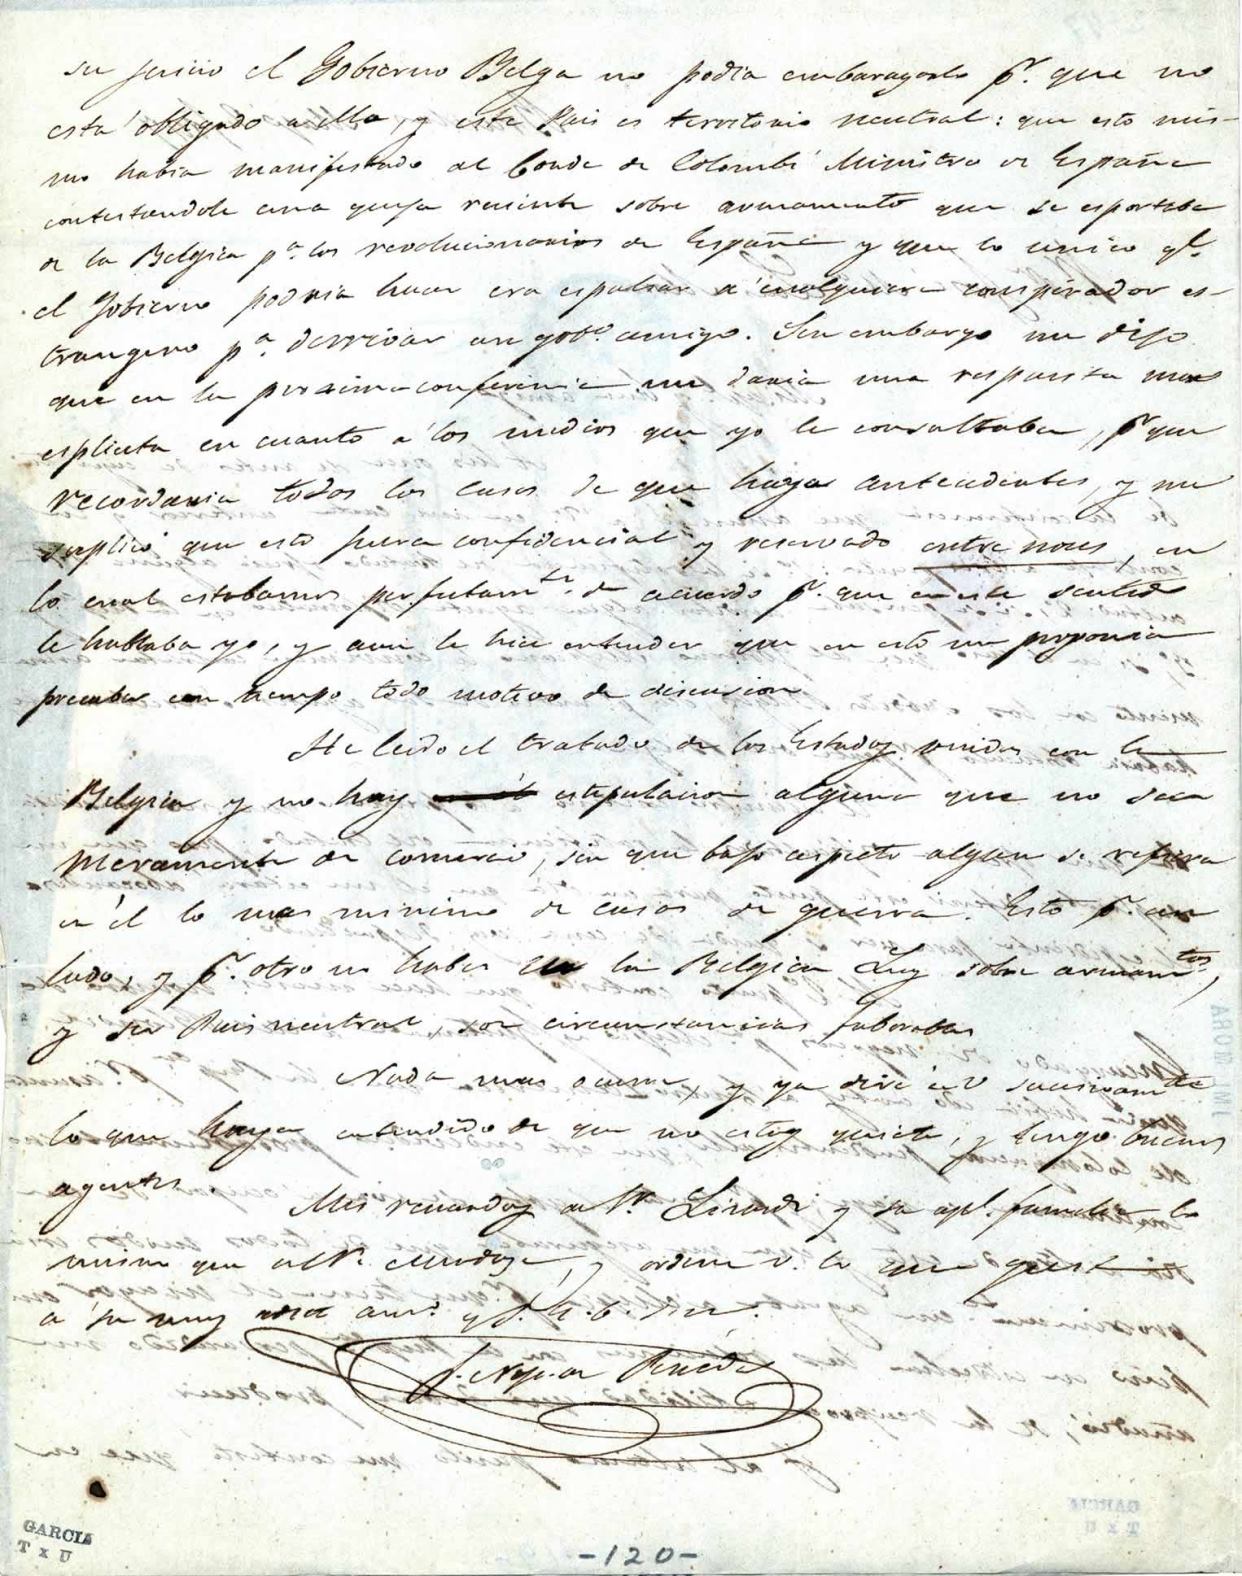 su juicio el Gobierno Belga no podia embarazarlo pr. que no
está obligado a ello, y este Pais es territorio neutral: que esto mis-
mo habia manifestado al Conde de Colombí Ministro de España
contestandole una queja reciente sobre armamento que se esportaba
de la Belgica pa. los revolucionarios de España y que lo unico qe.
el Gobierno podria hacer era espulsar a cualquiera conspirador es-
trangero pa. derrivar un gobo. amigo. Sin embargo me dijo
que en la proxima conferencia me daria una respuesta mas
esplicita en cuanto á los medios que yo le consultaba, pr. que
recordaria todos los casos de que haya antecedentes, y me
suplicó que esto fuera confidencial y reservado entre nous, en
lo cual estabamos perfectamte. de acuerdo pr. que en este sentido
le hablaba yo, y aun le hice entender que en esto me proponia
precaber con tiempo todo motivo de discusion
He leido el tratado de los Estados unidos con la
Belgica y no hay estipulacion alguna que no sea
meramente de comercio, sin que bajo aspecto algun se refiera
en él lo mas minimo de casos de guerra. Esto pr. un
lado, y pr. otro no haber en la Belgica Ley sobre armamtos.,
y ser Pais neutral, son circunstancias faborables
Nada mas ocurre, y ya diré a V sucesivamte
lo que haya entendido de que no estoy quieto, y tengo buenos
agentes.
Mis recuerdos a Sr. y su apl. familia lo
mismo que al Sr. y ordene V. lo que guste
á su muy amo. y S. Q. B. S. M.
GARCIA
T x U
-120-